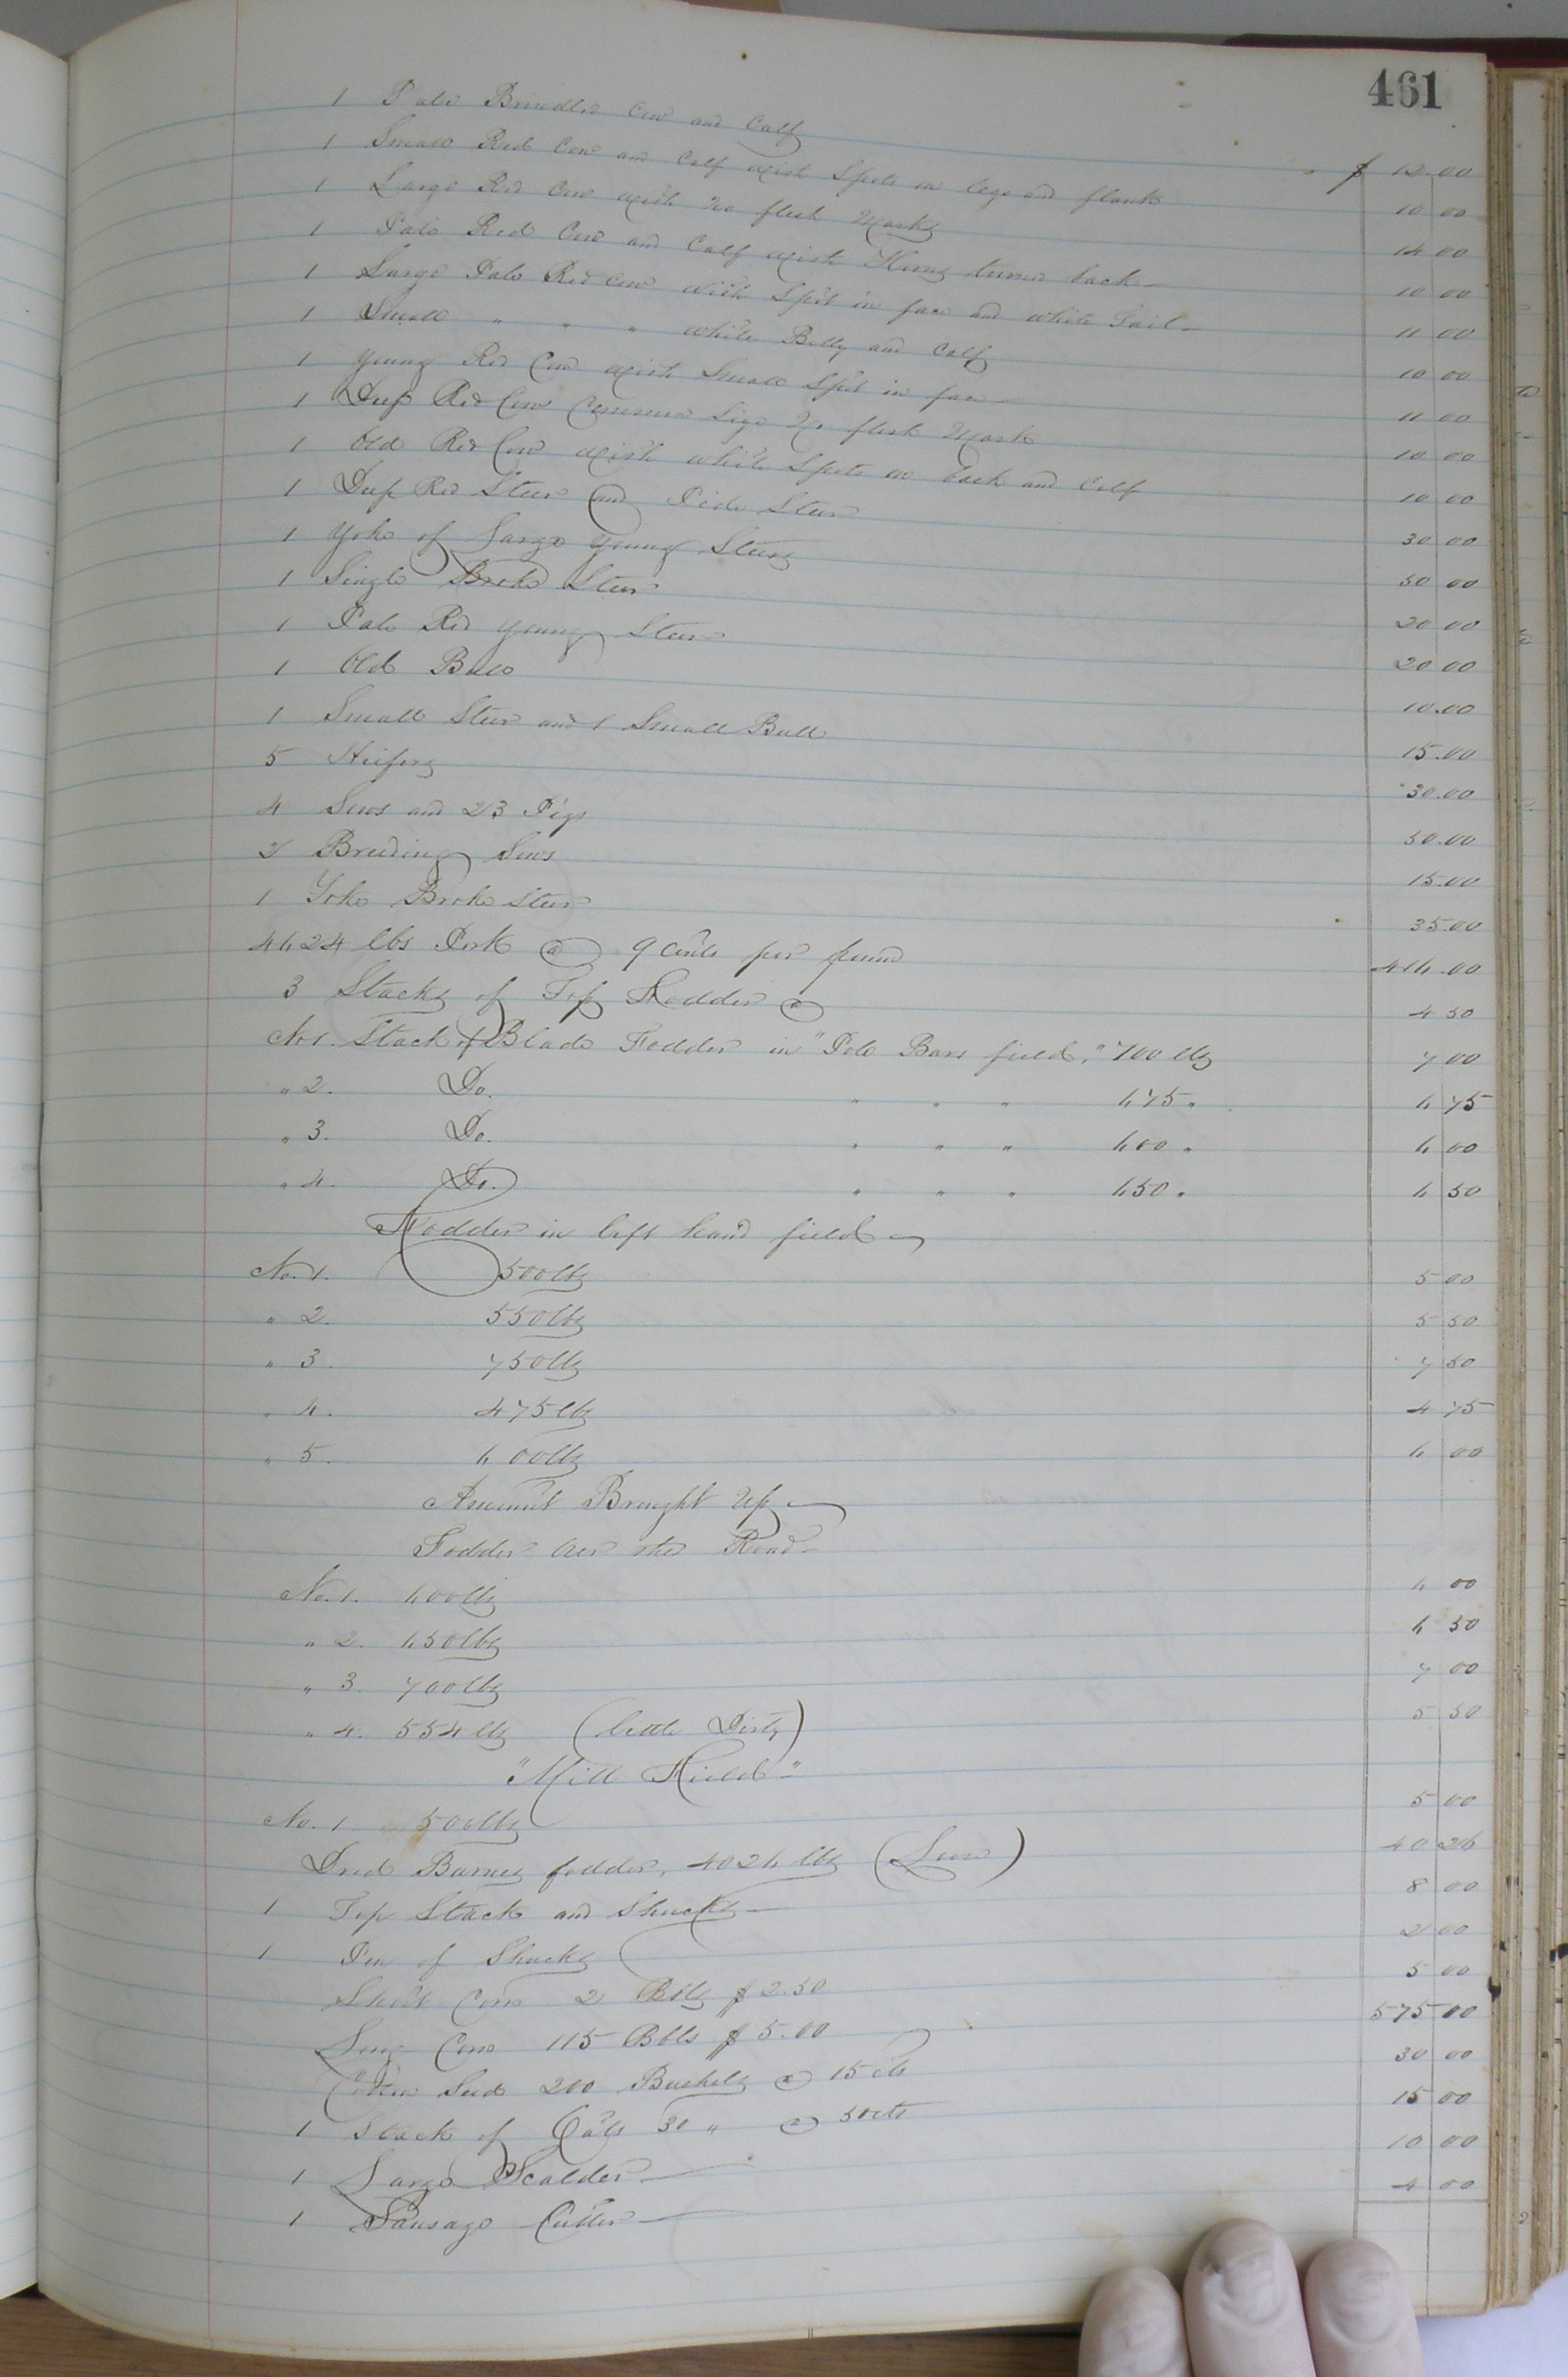 461
1 Pale Brindle Cow and Calf $ 12.00
1 Small Red Cow and Calf with Spots on legs and flank 10 00
1 Large Red Cow with no flesh Marks 14 00
1 Pale Red Cow and Calf with Horns turned back 10 00
1 Large Pale Red Cow with Spot in face and white Tail 11 00
1 Small " " " white Belly and Calf 10 00
1 Young Red Cow with Small Spot in face 11 00
1 Deep Red Cow Common Size No flesh Mark 10 00
1 Old Red Cow with white Spots on back and Calf 10 00
1 Deep Red Steer and Pide Steer 30 00
1 Yoke of Large Young Steers 50 00
1 Single Broke Steer 20 00
1 Pale Red Young Steer 20 00
1 Old Bull 10.00
1 Small Steer and 1 Small Bull 15.00
5 Heifers 30.00
4 Sows and 23 Pigs 50.00
2 Breeding Sows 15.00
1 Yoke Broke Steers 35.00
4624 lbs Pork @ 9 cents per pound 416.00
3 Stacks of Top Fodder @ 4 50
No 1. Stack of Blade Fodder in "Pole Bars field," 700 lbs 7 00
" 2. Do. " " " 675 " 6 75
" 3. Do. " " " 600 " 6 00
" 4. Do. " " " 650 " 6 50
Fodder in left hand field
No. 1. 500 lbs 5 00
" 2. 550 lbs 5 50
" 3. 750 lbs 7 50
" 4. 475 lbs 4 75
" 5. 600 lbs 6 00
Amount Brought Up
Fodder over the Road
No. 1. 600 lbs 6 00
" 2. 650 lbs 6 50
" 3. 700 lbs 7 00
" 4. 554 lbs (little Dirty) 5 50
"Mill Field"
No. 1 500 lbs 5 00
Barnes fodder, 4026 lbs 40 26
1 Top Stack and Shucks 8 00
1 Pen of Shucks 2 00
Short Corn 2 Bbls $ 2.50 5 00
Long Corn 115 Bbls $ 5.00 575 00
Cotton Seed 200 Bushels @ 15 cts 30 00
1 Stack of Oats 30 " @ 50 cts 15 00
1 Large Scalder 10 00
1 Sausage Cutter 4 00